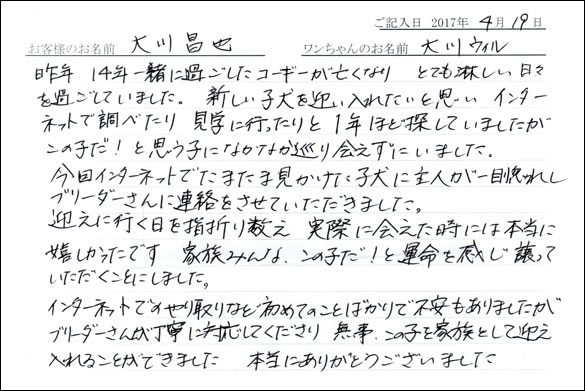 ご記入日 2017年 4月 19日
お客様のお名前 大川昌也 ワンちゃんのお名前 大川ウィル
昨年 14年一緒に過ごしたコーギーが亡くなり とても淋しい日々
を過ごしていました。 新しい子犬を迎い入れたいと思い インター
ネットで調べたり 見学に行ったりと 1年ほど探していましたが
この子だ！と思う子になかなか巡り会えずにいました。
今回インターネットでたまたま見かけた子犬に主人が一目惚れし
ブリーダーさんに連絡をさせていただきました。
迎えに行く日を指折り数え 実際に会えた時には本当に
嬉しかったです 家族みんな、この子だ！と運命を感じ譲って
いただくことにしました。
インターネットでのやり取りなど初めてのことばかりで不安もありましたが
ブリーダーさんが丁寧に対応してくださり 無事、この子を家族として迎え
入れることができました 本当にありがとうございました